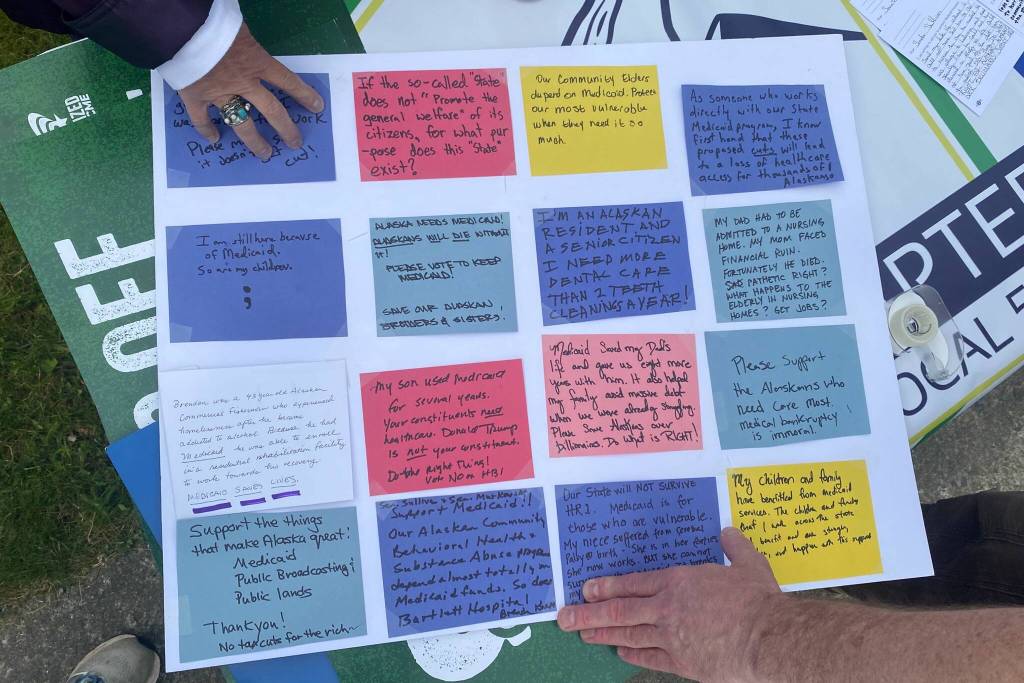 work
Please
it doesn't cut!
If the so-called "State"
does not "Promote the
general welfare" of its
citizens, for what pur
-pose does this "State"
exist?
Our Community Elders
depend on Medicaid. Protect
our most vulnerable
when they need it so
much.
As someone who works
directly with our State
Medicaid program, I know
first hand that these
proposed cuts will lead
to a loss of healthcare
access for thousands of
Alaskans!
I am still here because
of Medicaid.
So are my children.
;
ALASKA NEEDS MEDICAID!
ALASKANS WILL DIE WITHOUT
IT!
PLEASE VOTE TO KEEP
MEDICAID!
SAVE OUR ALASKAN
BROTHERS & SISTERS.
I'M AN ALASKAN
RESIDENT AND
A SENIOR CITIZEN
I NEED MORE
DENTAL CARE
THAN 2 TEETH
CLEANINGS A YEAR!
MY DAD HAD TO BE
ADMITTED TO A NURSING
HOME. MY MOM FACED
FINANCIAL RUIN.
FORTUNATELY HE DIED.
SAD PATHETIC RIGHT?
WHAT HAPPENS TO THE
ELDERLY IN NURSING
HOMES? GET JOBS?
Brendon was a 43 year old Alaskan
Commercial fisherman who experienced
homelessness after he became
addicted to alcohol. Because he had
Medicaid he was able to enroll
in a residential rehabilitation facility
to work towards his recovery.
MEDICAID SAVES LIVES.
My son used Medicaid
for several years.
Your constituents need
healthcare. Donald Trump
is not your constituent.
Do the Right Thing!
Vote NO on HB1
Medicaid Saved my Dad's
life and gave us eight more
years with him. It also helped
my family avoid massive debt
when we were already struggling.
Please Save Alaskans over
billionaires. Do what is RIGHT!
Please Support
the Alaskans who
need Care most.
Medical bankruptcy
is immoral.
Support the things
that make Alaska great!
Medicaid
Public Broadcasting &
Public lands
Thank you!
No tax cuts for the rich
Sen. Sullivan & Sen. Murkowski
Support Medicaid!!
Our Alaskan Community
Behavioral Health &
Substance Abuse programs
depend almost totally on
Medicaid funds. So does
Bartlett Hospital!
Our State will NOT SURVIVE
HR1. Medicaid is for
those who are vulnerable.
My niece suffered from Cerebral
Palsy @ birth - She is in her forties
She now works. But she cannot
My children and family
have benefitted from medicaid
services. The children and family
that I work across the state
benefit and are stronger,
and happier with this support
OFF
PTER
OCAL